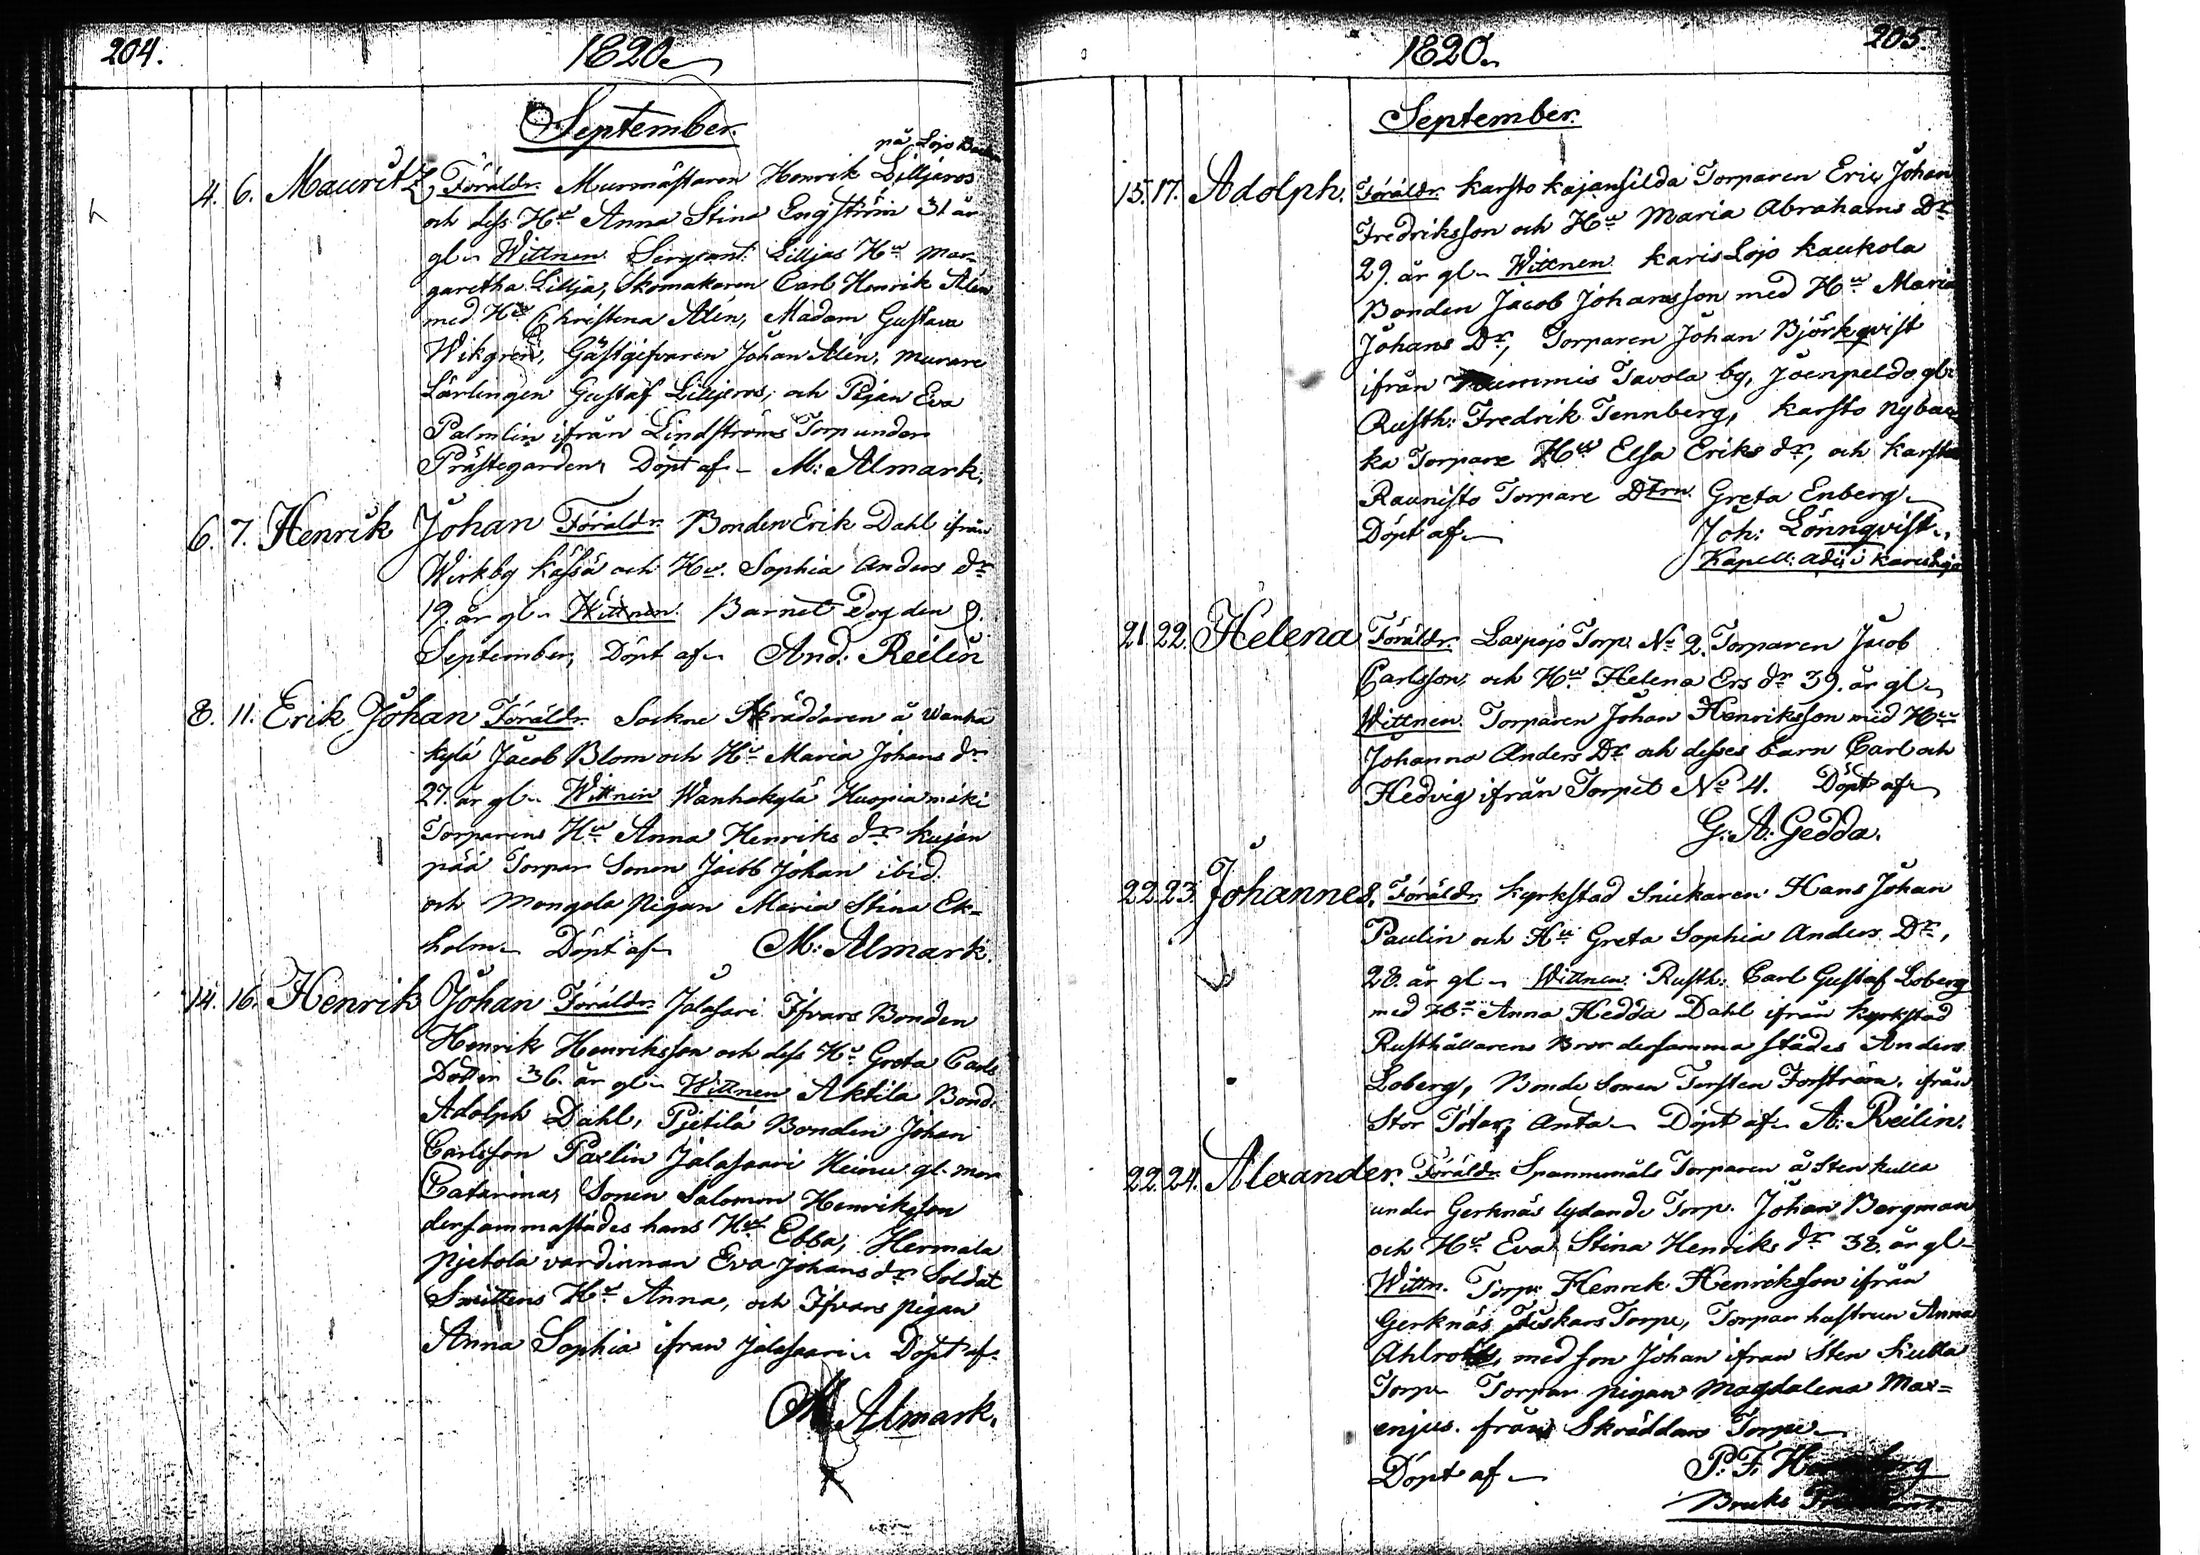 204.
1820.
September.
på Lojo Backe
4. 6. Mauritz, Föräldr. Murmästaren Henrik Liljeros
och dess Hu Anna Stina Engström 31 år
gl. Wittnen. Sergeant Lilljas Hu Mar-
garetha Lillja, Skomakaren Carl Henrik Alén
med Hu Christina Alén, Madam Gustava
Wikgren, Gästgifvaren Johan Alén, murare
Lärlingen Gustaf Liljeros, och Pigan Eva
Palmlin ifrån Lindströms Torp under
Prästegården, Döpt af M: Almark.
6. 7. Henrik Johan Föräldr. Bonden Erik Dahl ifrån
Wirkby och Hu. Sophia Anders dr
19. år gl. Wittnen. Barnet dog den 9.
September, Döpt af And: Reilin
8. 11. Erik Johan Föräldr. Sockne Skräddaren å Wanha
kylä Jacob Blom och Hu Maria Johans dr
27. år gl. Wittnen Wanhakylä Kuopia mäki
Torparens Hu Anna Henriks dr Kujan
pää Torpar Sonen Jacob Johan ibid.
och Mongola pigan Maria Stina Ek=
holm Döpt af M: Almark.
14. 16. Henrik Johan Föräldr. Jalasari Ifvars Bonden
Henrik Henriksson och dess Hu Greta Carls
Dotter 36. år gl. Wittnen Aktila Bond.
Adolph Dahl, Pietilä Bonden Johan
Carlsson Paxlin Jalasaari Heinu gl. mor
Catarina, Sonen Salomon Henriksson
dersammastädes hans Hu Ebba, Hermala
Pjetola värdinnan Eva Johans dr Soldat
Smittens Hu Anna, och Ifvars pigan
Anna Sophia ifrån Jalasaari Döpt af
M Almark.
205.
1820.
September.
15. 17. Adolph. Föräldr. Karsto Kajansilda Torparen Eric Johan
Fredriksson och Hu Maria Abrahams Dr
29. år gl. Wittnen. Karislojo Kaukola
Bonden Jacob Johansson med Hu Maria
Johans Dr, Torparen Johan Björkqvist
ifrån Nummis Tavola by, Joenpeldo gl.
Rusth: Fredrik Tennberg, Karsto nybac
ka Torpare Hu Elsa Eriks dr, och Karsto
Raunisto Torpare Dtrn. Greta Enberg
Döpt af Joh: Lönnqvist.
Kapell: adj: i Karislojo
21. 22. Helena Föräldr. Laxpojo Torp. No 2. Torparen Jacob
Carlsson, och Hu Helena Ers dr 39. år gl.
Wittnen. Torparen Johan Henriksson med Hu
Johanna Anders Dr och desses barn Carl och
Hedvig ifrån Torpet No 4. Döpt af
G: A: Gedda.
22. 23. Johannes. Föräldr. Kyrkstad Snickaren Hans Johan
Paulin och Hu Greta Sophia Anders Dr,
28. år gl. Wittnen. Rusth: Carl Gustaf Loberg
med Hu Anna Hedda Dahl ifrån Kyrkstad
Rusthållarens Bror dersamma städes Anders
Loberg, Bonde Sonen Torsten Forström, ifrån
Stor Totar Anta Döpt af A: Reilin.
22. 24. Alexander. Föräldr. Spannemåls Torparen å Stenkulla
under Gerknäs lydande Torp. Johan Bergman
och Hu Eva Stina Henriks dr 38. år gl.
Wittn. Torp. Henrik Henriksson ifrån
Gerknäs Fiskars Torpe, Torpar hustrun Anna
med son Johan ifrån Sten Kulla
Torp Torpar pigan Magdalena Max=
enjus. från Skräddars Torpe
Döpt af P: F:
Bruks